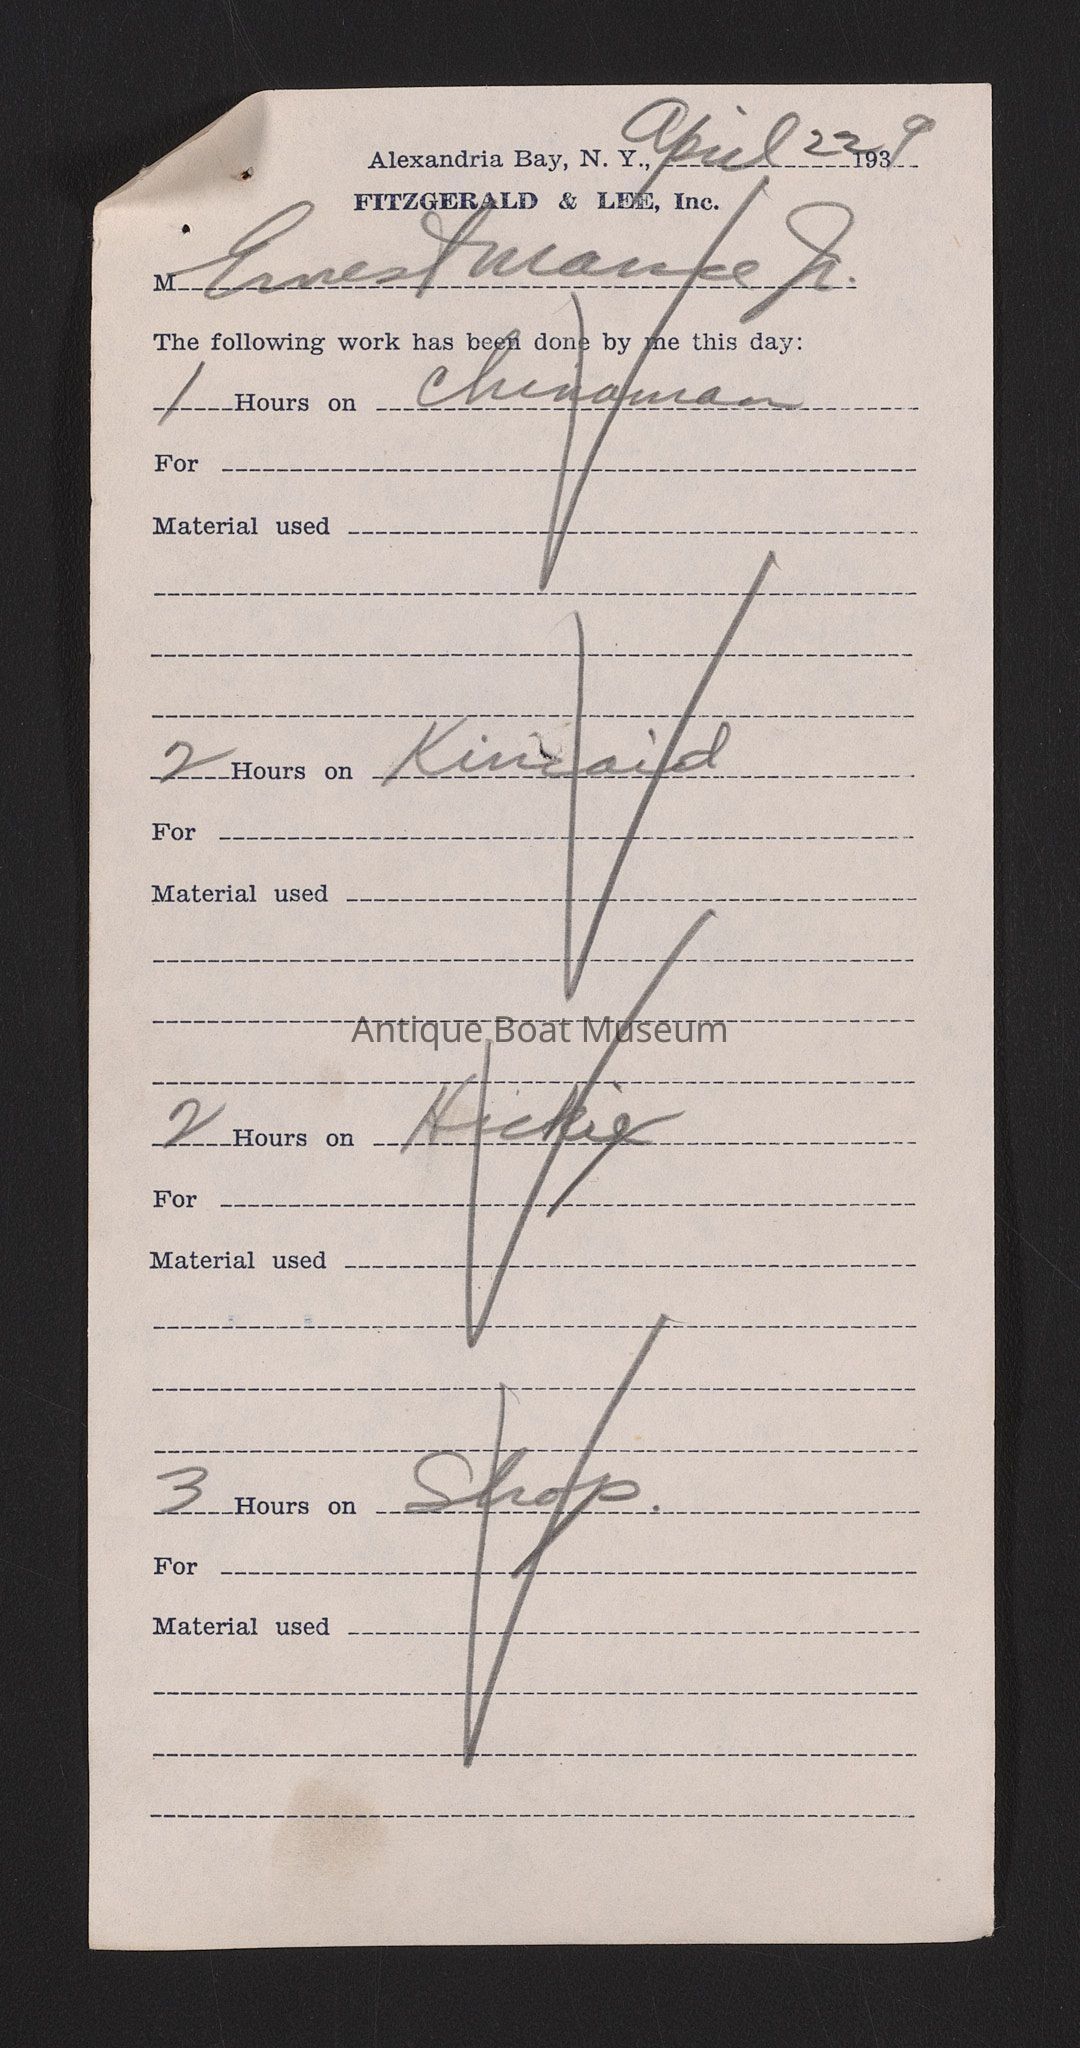 Alexandria Bay, N. Y., April 22 1939
FITZGERALD & LEE, Inc.
M Ernest Mance Jr.
The following work has been done by me this day:
1 Hours on Chinaman
For
Material used
2 Hours on Kincaid
For
Material used
Antique Boat Museum
2 Hours on Hickie
For
Material used
3 Hours on Shop.
For
Material used